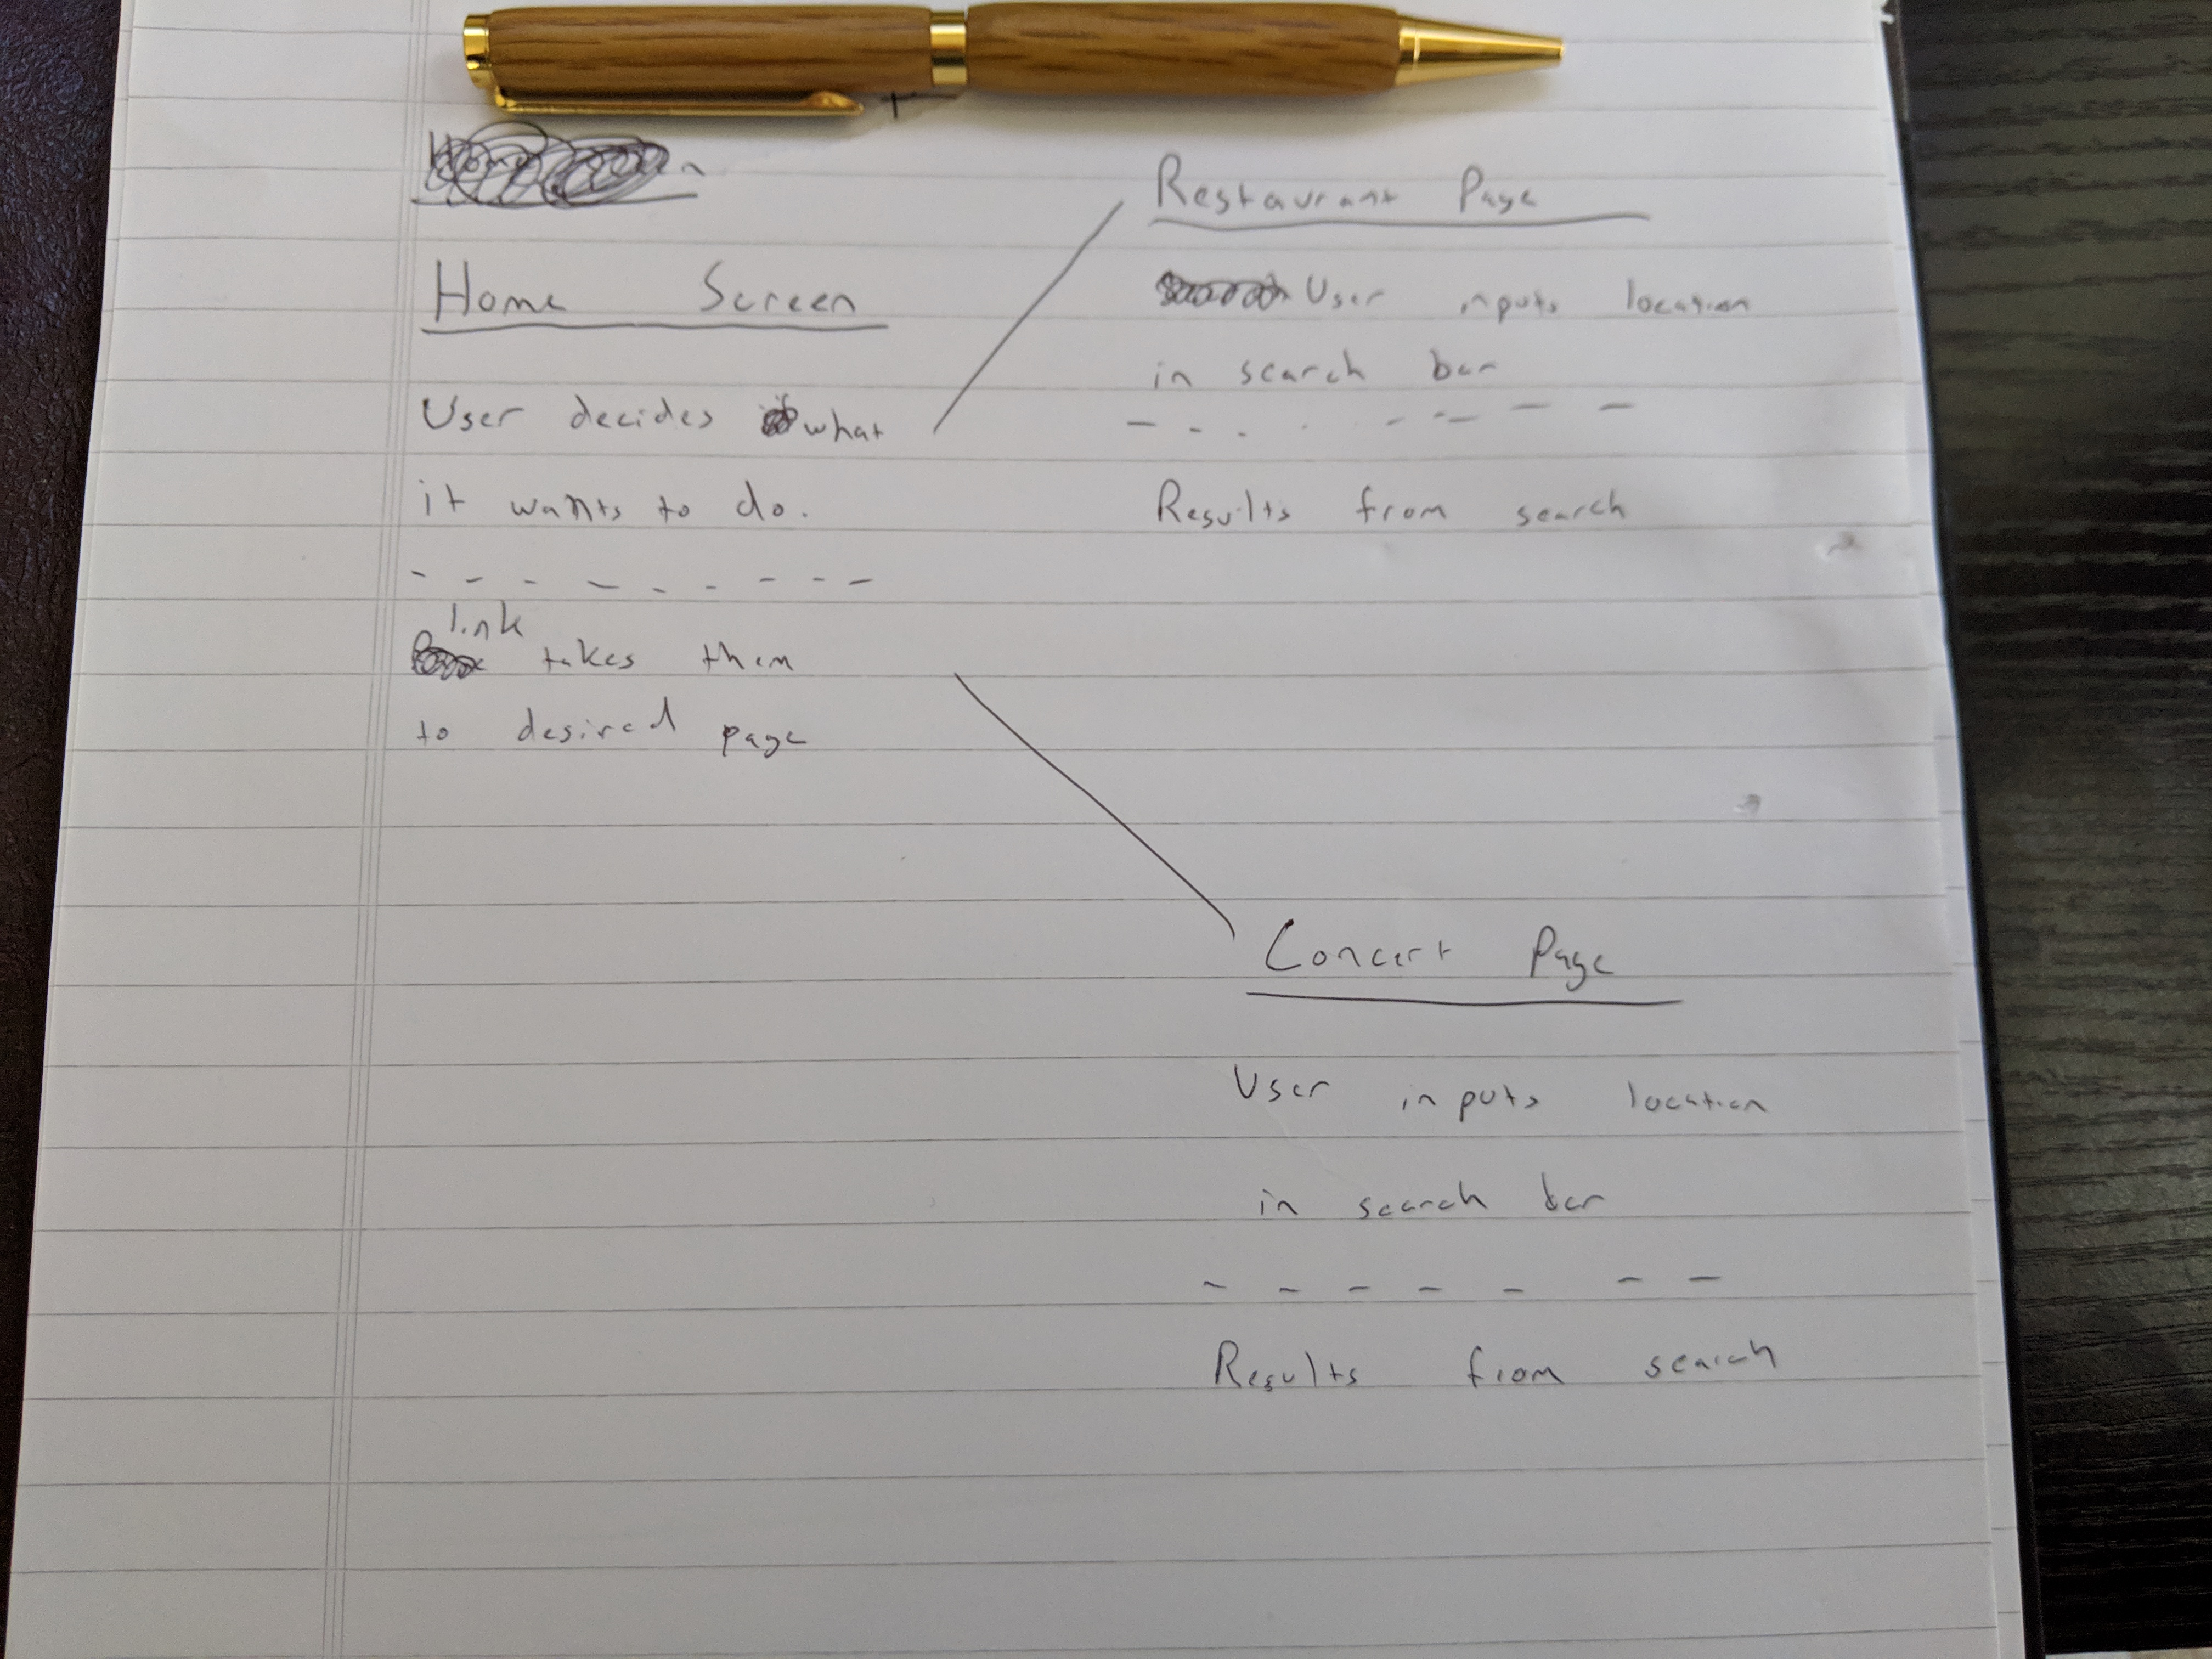 Home Screen
User decides what
it wants to do.
- - - - - - - - -
link takes them
to desired page
Restaurant Page
User inputs location
in search bar
- - - - - - - -
Results from search
Concert Page
User inputs location
in search bar
- - - - - - -
Results from search